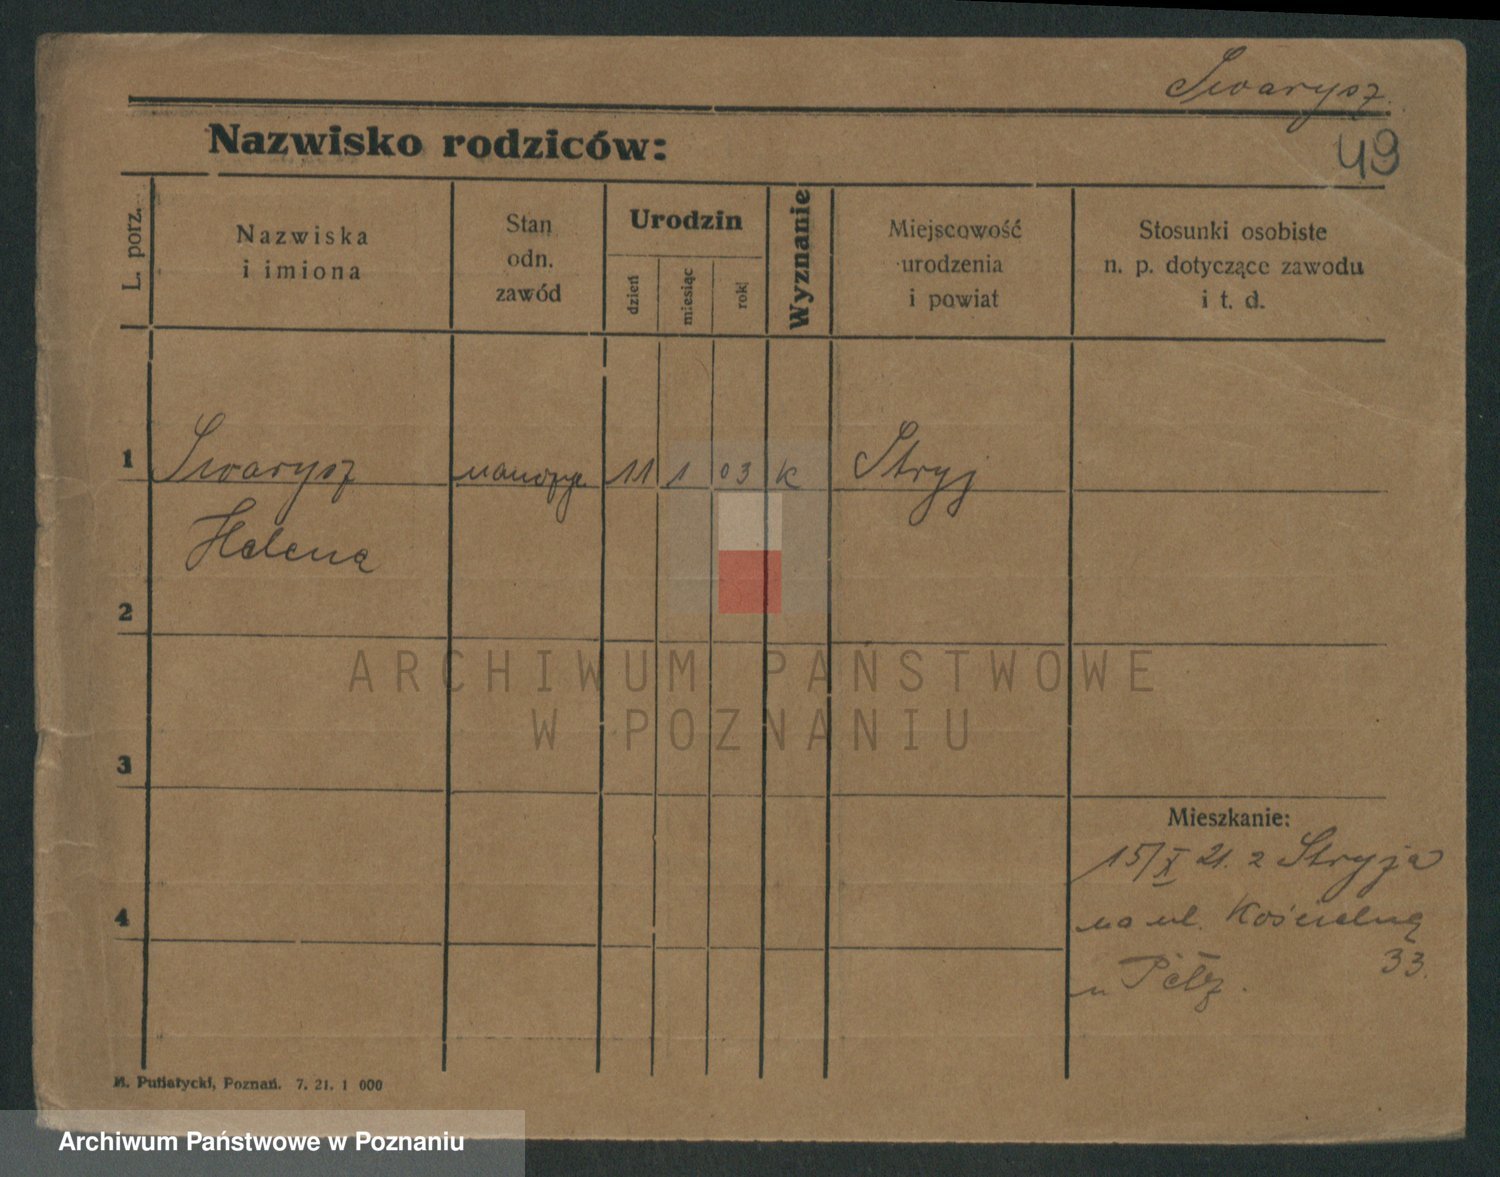 Swarysz
49
Nazwisko rodziców:
L. porz.
Nazwiska
i imiona
Stan
odn.
zawód
Urodzin
dzień
miesiąc
rok
Wyznanie
Miejscowość
urodzenia
i powiat
Stosunki osobiste
n. p. dotyczące zawodu
i t. d.
1 Swarysz 11 1 03 K Stryj
Helena
2
ARCHIWUM PAŃSTWOWE
W POZNANIU
3
Mieszkanie:
15/X 21. z Stryja
4
na ul. Kościelną
33.
u
M. Putiatycki, Poznań. 7. 21. 1 000
Archiwum Państwowe w Poznaniu